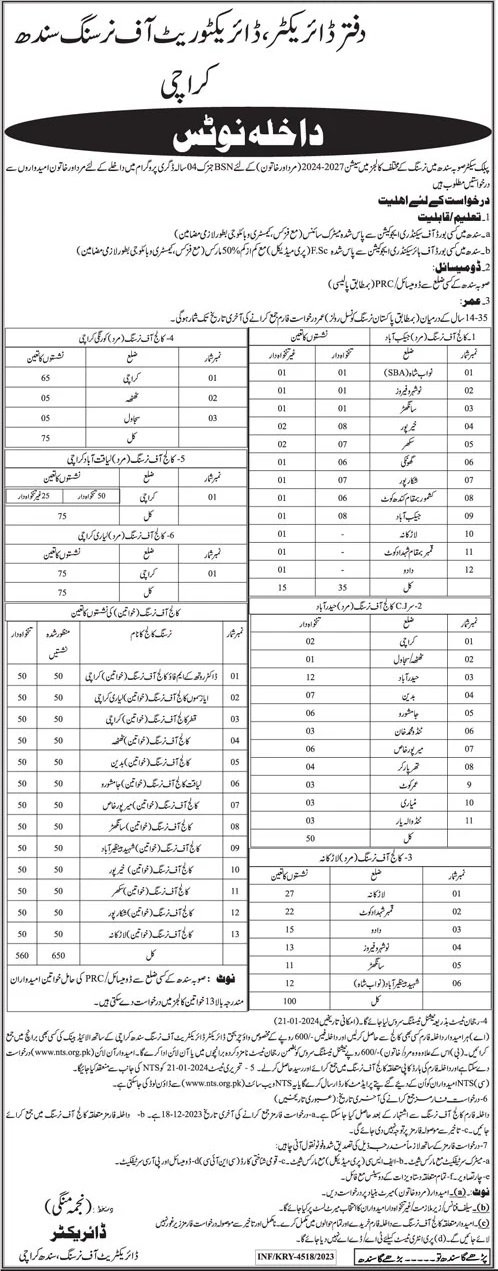 دفتر ڈائریکٹر، ڈائریکٹوریٹ آف نرسنگ سندھ
کراچی
داخلہ نوٹس
پبلک سیکٹر صوبہ سندھ میں نرسنگ کے مختلف کالجز میں سیشن 2027-2024 (مرد اور خاتون) کے لئے BSN جنرک 04 سالہ ڈگری پروگرام میں داخلے کے لئے مرد اور خاتون امیدواروں سے
درخواستیں مطلوب ہیں
درخواست کے لئے اہلیت
1۔ تعلیم/قابلیت
a۔ سندھ میں کسی بورڈ آف سیکنڈری ایجوکیشن سے پاس شدہ میٹرک سائنس (مع فزکس، کیمسٹری و بائیولوجی بطور لازمی مضامین)
b۔ سندھ میں کسی بورڈ آف ہائر سیکنڈری ایجوکیشن سے پاس شدہ F.Sc (پری میڈیکل) مع کم از کم 50% مارکس (مع فزکس، کیمسٹری و بائیولوجی بطور لازمی مضامین)
2۔ ڈومیسائل:
صوبہ سندھ کے کسی ضلع سے ڈومیسائل/PRC (بمطابق پالیسی)
3۔ عمر:
14-35 سال کے درمیان (بمطابق پاکستان نرسنگ کونسل رولز) عمر درخواست فارم جمع کرانے کی آخری تاریخ تک شمار ہوگی۔
1۔ کالج آف نرسنگ (مرد) جیکب آباد نشستوں کا تعین
نمبر شمار ضلع تنخواہ دار غیر تنخواہ دار
01 نواب شاہ (SBA) 01 01
02 نوشہروفیروز 01 01
03 سانگھڑ 01 01
04 خیرپور 07 02
05 سکھر 07 02
06 گھوٹکی 07 01
07 شکارپور 07 01
08 کشمور بمقام کندھ کوٹ 06 01
09 جیکب آباد 08 01
10 لاڑکانہ - 01
11 قمبر بمقام شہدادکوٹ - 01
12 دادو - 01
کل 35 15
2۔ سر C.J کالج آف نرسنگ (مرد) حیدرآباد
نمبر شمار ضلع تنخواہ دار
01 کراچی 02
02 ٹھٹھہ/سجاول 01
03 حیدرآباد 12
04 بدین 07
05 جامشورو 06
06 ٹنڈو محمد خان 03
07 میرپور خاص 06
08 تھرپارکر 04
9 عمرکوٹ 03
10 مٹیاری 03
11 ٹنڈوالہیار 03
کل 50
3۔ کالج آف نرسنگ (مرد) لاڑکانہ
نمبر شمار ضلع نشستوں کا تعین
01 لاڑکانہ 27
02 قمبر شہدادکوٹ 22
03 دادو 15
04 نوشہروفیروز 13
05 سانگھڑ 11
06 شہید بینظیرآباد (نواب شاہ) 12
کل 100
4۔ کالج آف نرسنگ (مرد) کورنگی کراچی
نمبر شمار ضلع نشستوں کا تعین
01 کراچی 65
02 ٹھٹھہ 05
03 سجاول 05
کل 75
5۔ کالج آف نرسنگ (مرد) لیاقت آباد کراچی
نمبر شمار ضلع نشستوں کا تعین
01 کراچی 50 تنخواہ دار 25 غیر تنخواہ دار
کل 75
6۔ کالج آف نرسنگ (مرد) لیاری کراچی
نمبر شمار ضلع نشستوں کا تعین
01 کراچی 75
کل 75
کالج آف نرسنگ (خواتین) کی نشستوں کا تعین
نمبر شمار نرسنگ کالج کا نام منظور شدہ نشستیں تنخواہ دار
01 ڈاکٹر رتھ کے ایم فاؤ کالج آف نرسنگ (خواتین) کراچی 50 50
02 کالج آف نرسنگ (خواتین) لیاری کراچی 50 50
03 قطر کالج آف نرسنگ (خواتین) کراچی 50 50
04 کالج آف نرسنگ (خواتین) ٹھٹھہ 50 50
05 کالج آف نرسنگ (خواتین) بدین 50 50
06 لیاقت کالج آف نرسنگ (خواتین) جامشورو 50 50
07 کالج آف نرسنگ (خواتین) میرپور خاص 50 50
08 کالج آف نرسنگ (خواتین) سانگھڑ 50 50
09 کالج آف نرسنگ (خواتین) شہید بینظیرآباد 50 50
10 کالج آف نرسنگ (خواتین) خیرپور 50 50
11 کالج آف نرسنگ (خواتین) سکھر 50 50
12 کالج آف نرسنگ (خواتین) شکارپور 50 50
13 کالج آف نرسنگ (خواتین) لاڑکانہ 50 50
کل 650 560
نوٹ: صوبہ سندھ کے کسی ضلع سے ڈومیسائل/PRC کی حامل خواتین امیدواران
مندرجہ بالا 13 خواتین کالجز میں درخواست دے سکتی ہیں۔
4۔ رجحان ٹیسٹ بذریعہ نیشنل ٹیسٹنگ سروس لیا جائے گا۔ (امکانی تاریخیں 2024-01-21)
5۔ تحریری ٹیسٹ 2024-01-21 کو NTS کی جانب سے منعقد کیا جائیگا
NTS ویب سائٹ (www.nts.org.pk) سے ڈاؤن لوڈ کی جاسکتی ہے
6۔ درخواست فارمز جمع کرانے کی آخری تاریخ: (عبوری تاریخیں)
داخلہ فارم کالج آف نرسنگ سے اشتہار کے بعد حاصل کیا جاسکتا ہے۔ a۔ درخواست فارمز جمع کرانے کی آخری تاریخ 2023-12-18 ہے۔ b۔ داخلہ فارمز متعلقہ کالج آف نرسنگ میں جمع کرائے
جائیں۔ c۔ تاخیر سے موصولہ فارمز پر توجہ نہیں دی جائے گی۔
7۔ درخواست فارمز کے ساتھ لازماً مندرجہ ذیل کی تصدیق شدہ فوٹو نقول آنی چاہئیں:
a۔ میٹرک سرٹیفکیٹ مع مارکس شیٹ۔ b۔ ایف ایس سی (پری میڈیکل) مع مارکس شیٹ۔ c۔ قومی شناختی کارڈ (سی این آئی سی) d۔ ڈومیسائل اور پی آر سی سرٹیفکیٹ۔
نوٹ: (a)۔ امیدوار (مرد و خاتون) میرٹ بنیاد پر درخواست دیں۔
(نجمہ منگی)
ڈائریکٹر
ڈائریکٹوریٹ آف نرسنگ، سندھ کراچی
INF/KRY-4518/2023
پڑھے گا سندھ تو..... بڑھے گا سندھ